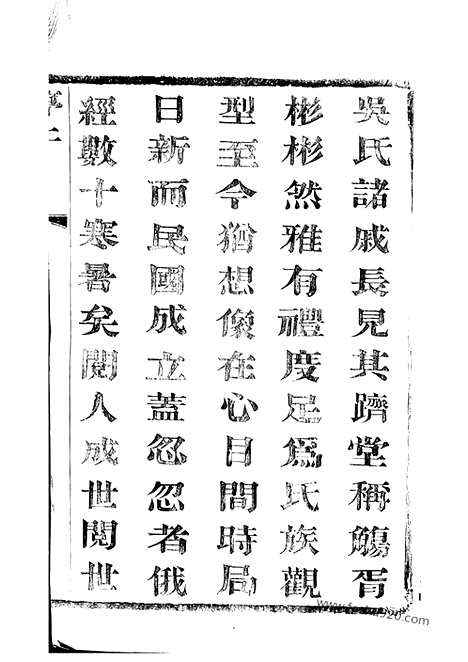 吳氏諸戚長見其躋堂稱觴胥
彬彬然雅有禮度足爲氏族觀
型至今猶想像在心目間時局
日新而民國成立蓋忽忽者俄
經數十寒暑矣閱人成世閱世
序二